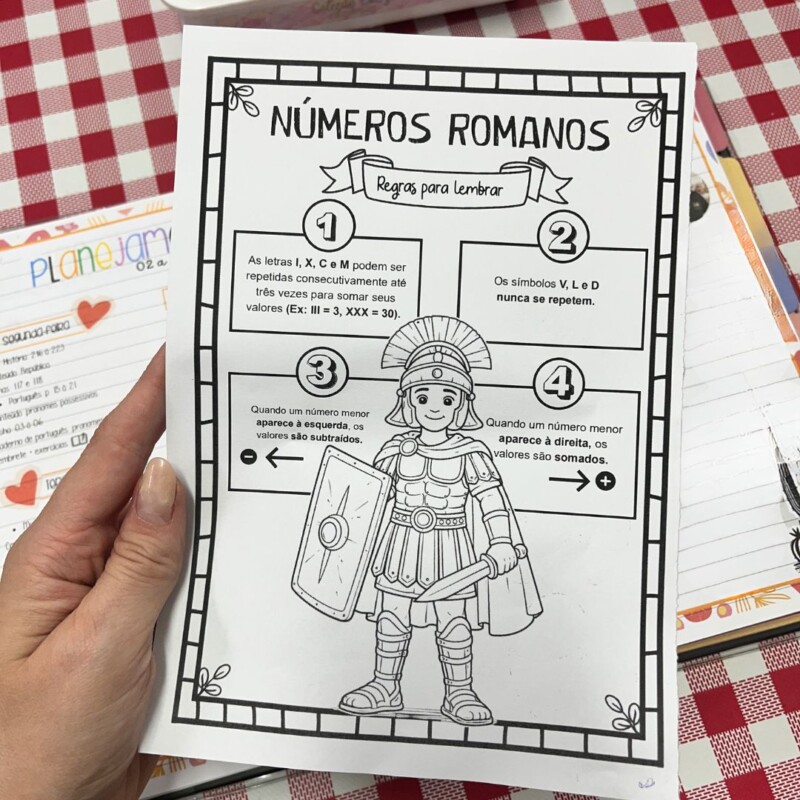 NÚMEROS ROMANOS
Regras para lembrar
1
As letras I, X, C e M podem ser
repetidas consecutivamente até
três vezes para somar seus
valores (Ex: III = 3, XXX = 30).
2
Os símbolos V, L e D
nunca se repetem.
3
Quando um número menor
aparece à esquerda, os
valores são subtraídos.
4
Quando um número menor
aparece à direita, os
valores são somados.
PLANEJAM
02 a
Segunda-feira
História 216 a 223
117 e 118
Português p. 15 a 21
pronomes possessivos
03-6-06
caderno de português pronomes
lembrete - exercícios